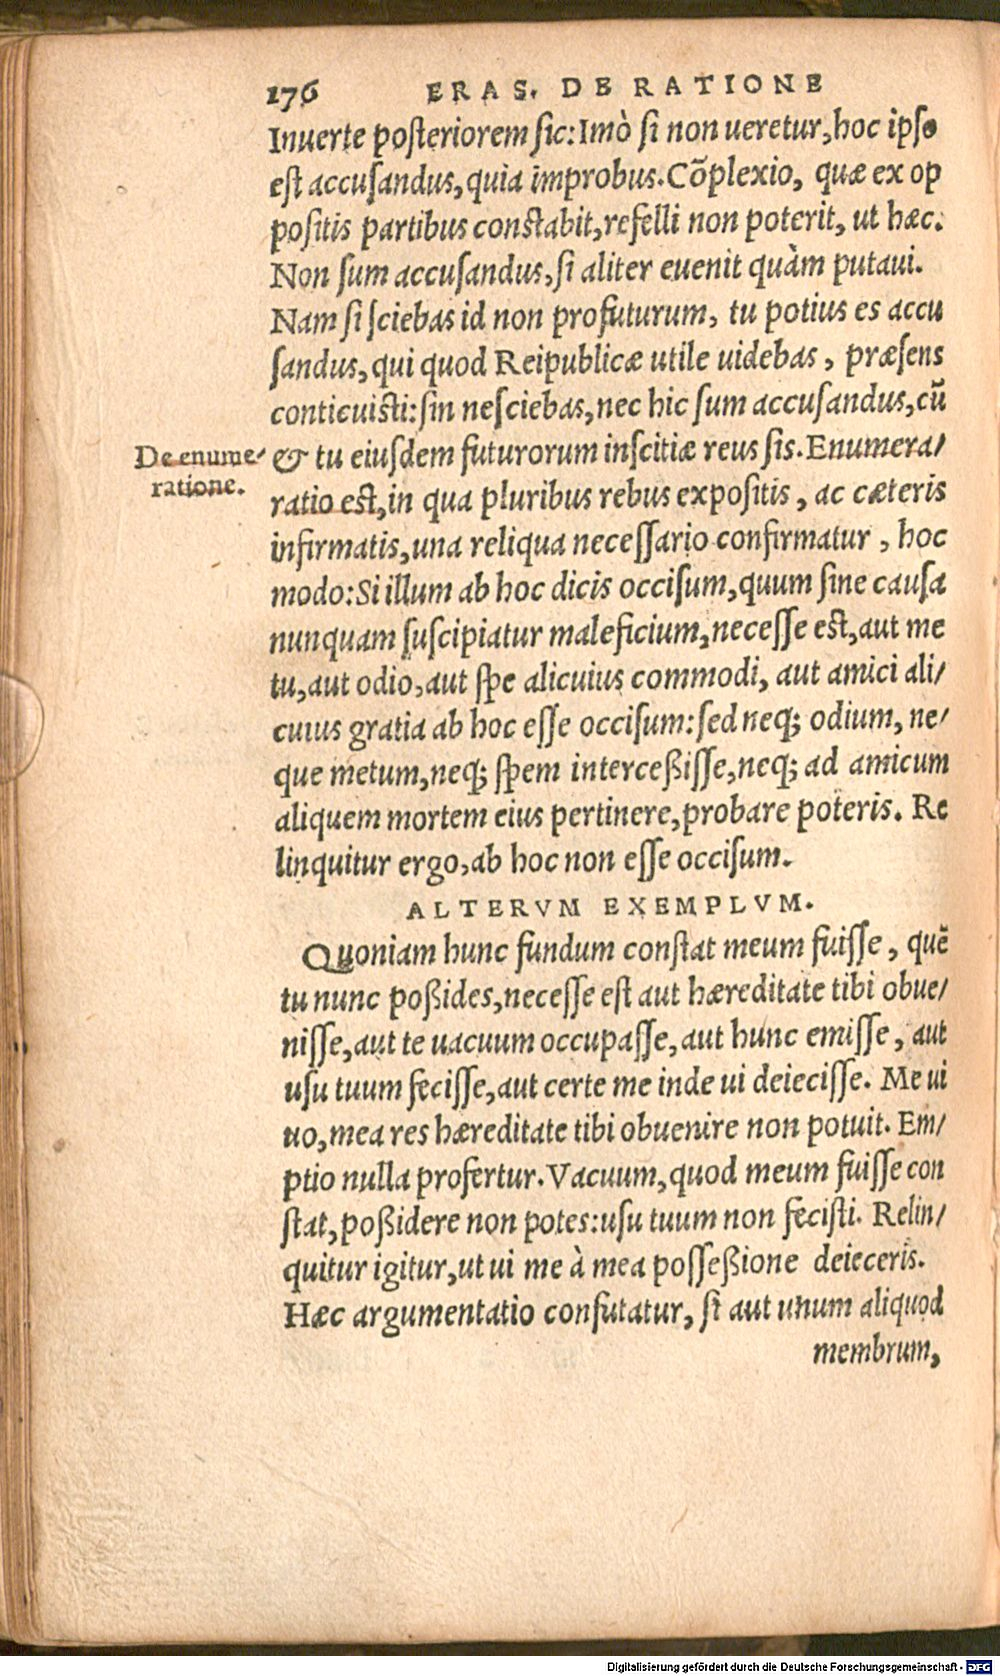 176 ERAS. DE RATIONE
Inuerte posteriorem sic: Imò si non ueretur, hoc ipso
est accusandus, quia improbus. Cõplexio, quæ ex op
positis partibus constabit, refelli non poterit, ut hæc.
Non sum accusandus, si aliter euenit quàm putaui.
Nam si sciebas id non profuturum, tu potius es accu
sandus, qui quod Reipublicæ utile uidebas, præsens
conticuisti: sin nesciebas, nec hic sum accusandus, cũ
De enume/
ratione.
& tu eiusdem futurorum inscitiæ reus sis. Enumera/
ratio est, in qua pluribus rebus expositis, ac cæteris
infirmatis, una reliqua necessario confirmatur, hoc
modo: Si illum ab hoc dicis occisum, quum sine causa
nunquam suscipiatur maleficium, necesse est, aut me
tu, aut odio, aut spe alicuius commodi, aut amici ali/
cuius gratia ab hoc esse occisum: sed neq; odium, ne/
que metum, neq; spem interceßisse, neq; ad amicum
aliquem mortem eius pertinere, probare poteris. Re
linquitur ergo, ab hoc non esse occisum.
ALTERVM EXEMPLVM.
Quoniam hunc fundum constat meum fuisse, quẽ
tu nunc poßides, necesse est aut hæreditate tibi obue/
nisse, aut te uacuum occupasse, aut hunc emisse, aut
usu tuum fecisse, aut certe me inde ui deiecisse. Me ui
uo, mea res hæreditate tibi obuenire non potuit. Em/
ptio nulla profertur. Vacuum, quod meum fuisse con
stat, poßidere non potes: usu tuum non fecisti. Relin/
quitur igitur, ut ui me à mea possesßione deieceris.
Hæc argumentatio confutatur, si aut unum aliquod
membrum,
Digitalisierung gefördert durch die Deutsche Forschungsgemeinschaft - DFG